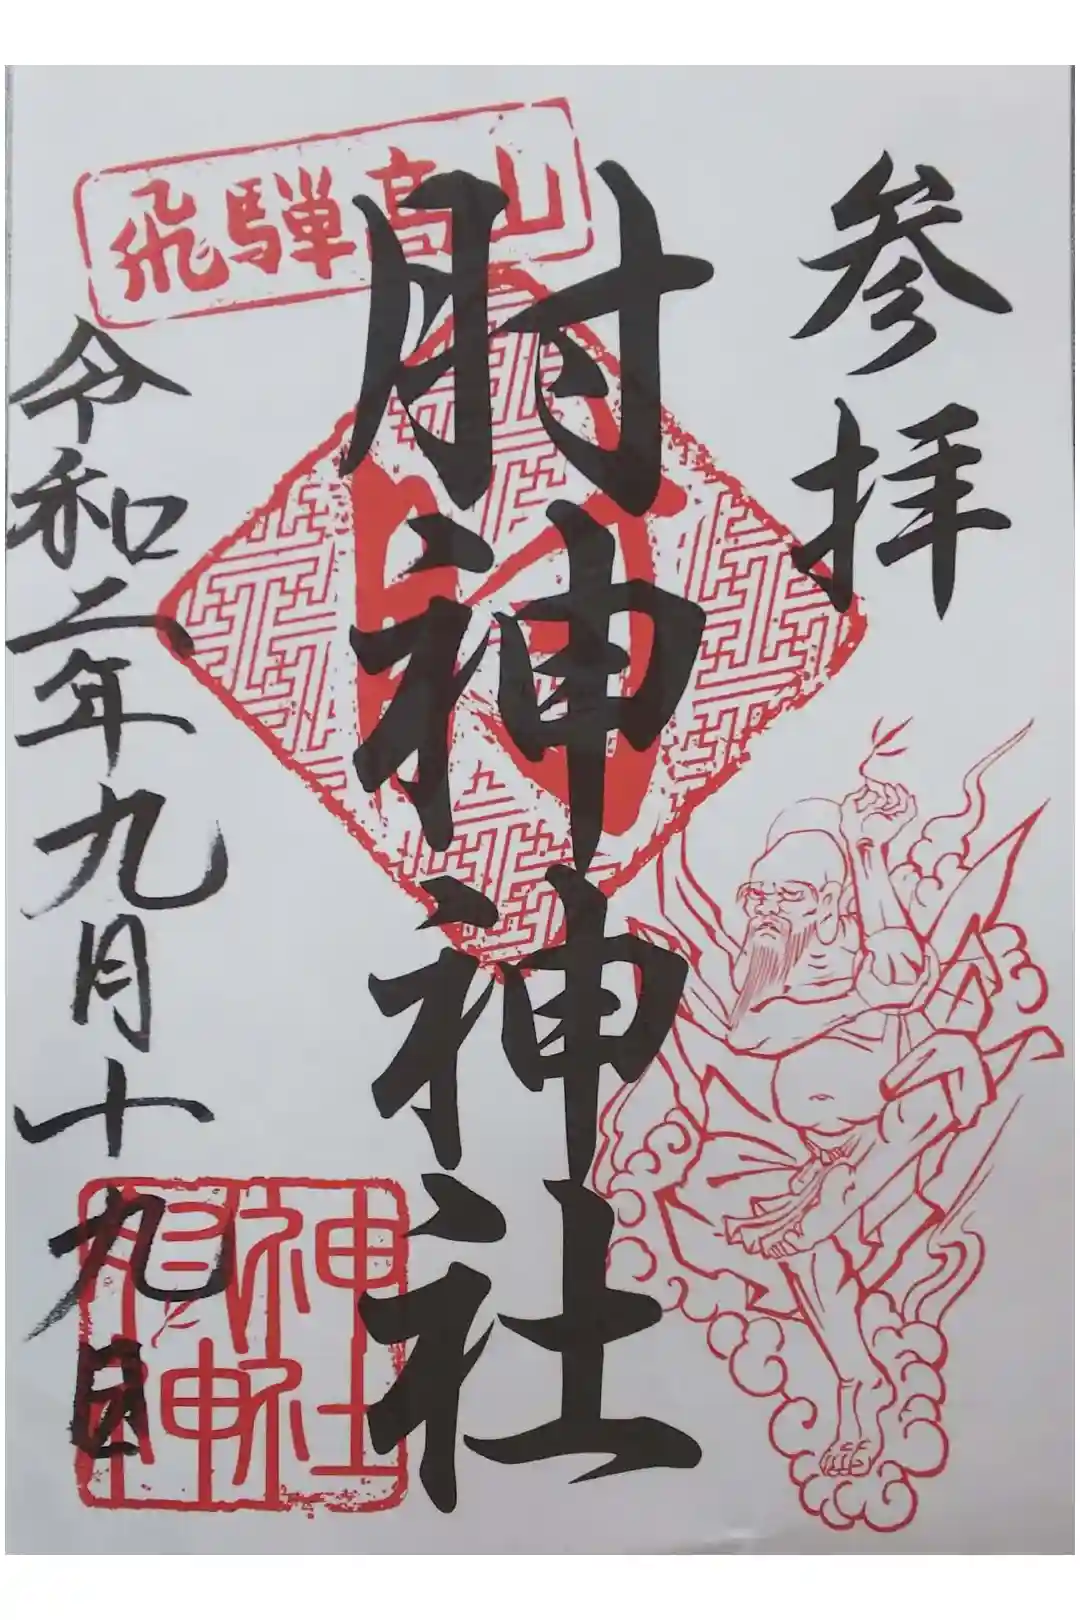 参拝
飛騨高山
肘神神社
令和二年九月十九日
肘神神社